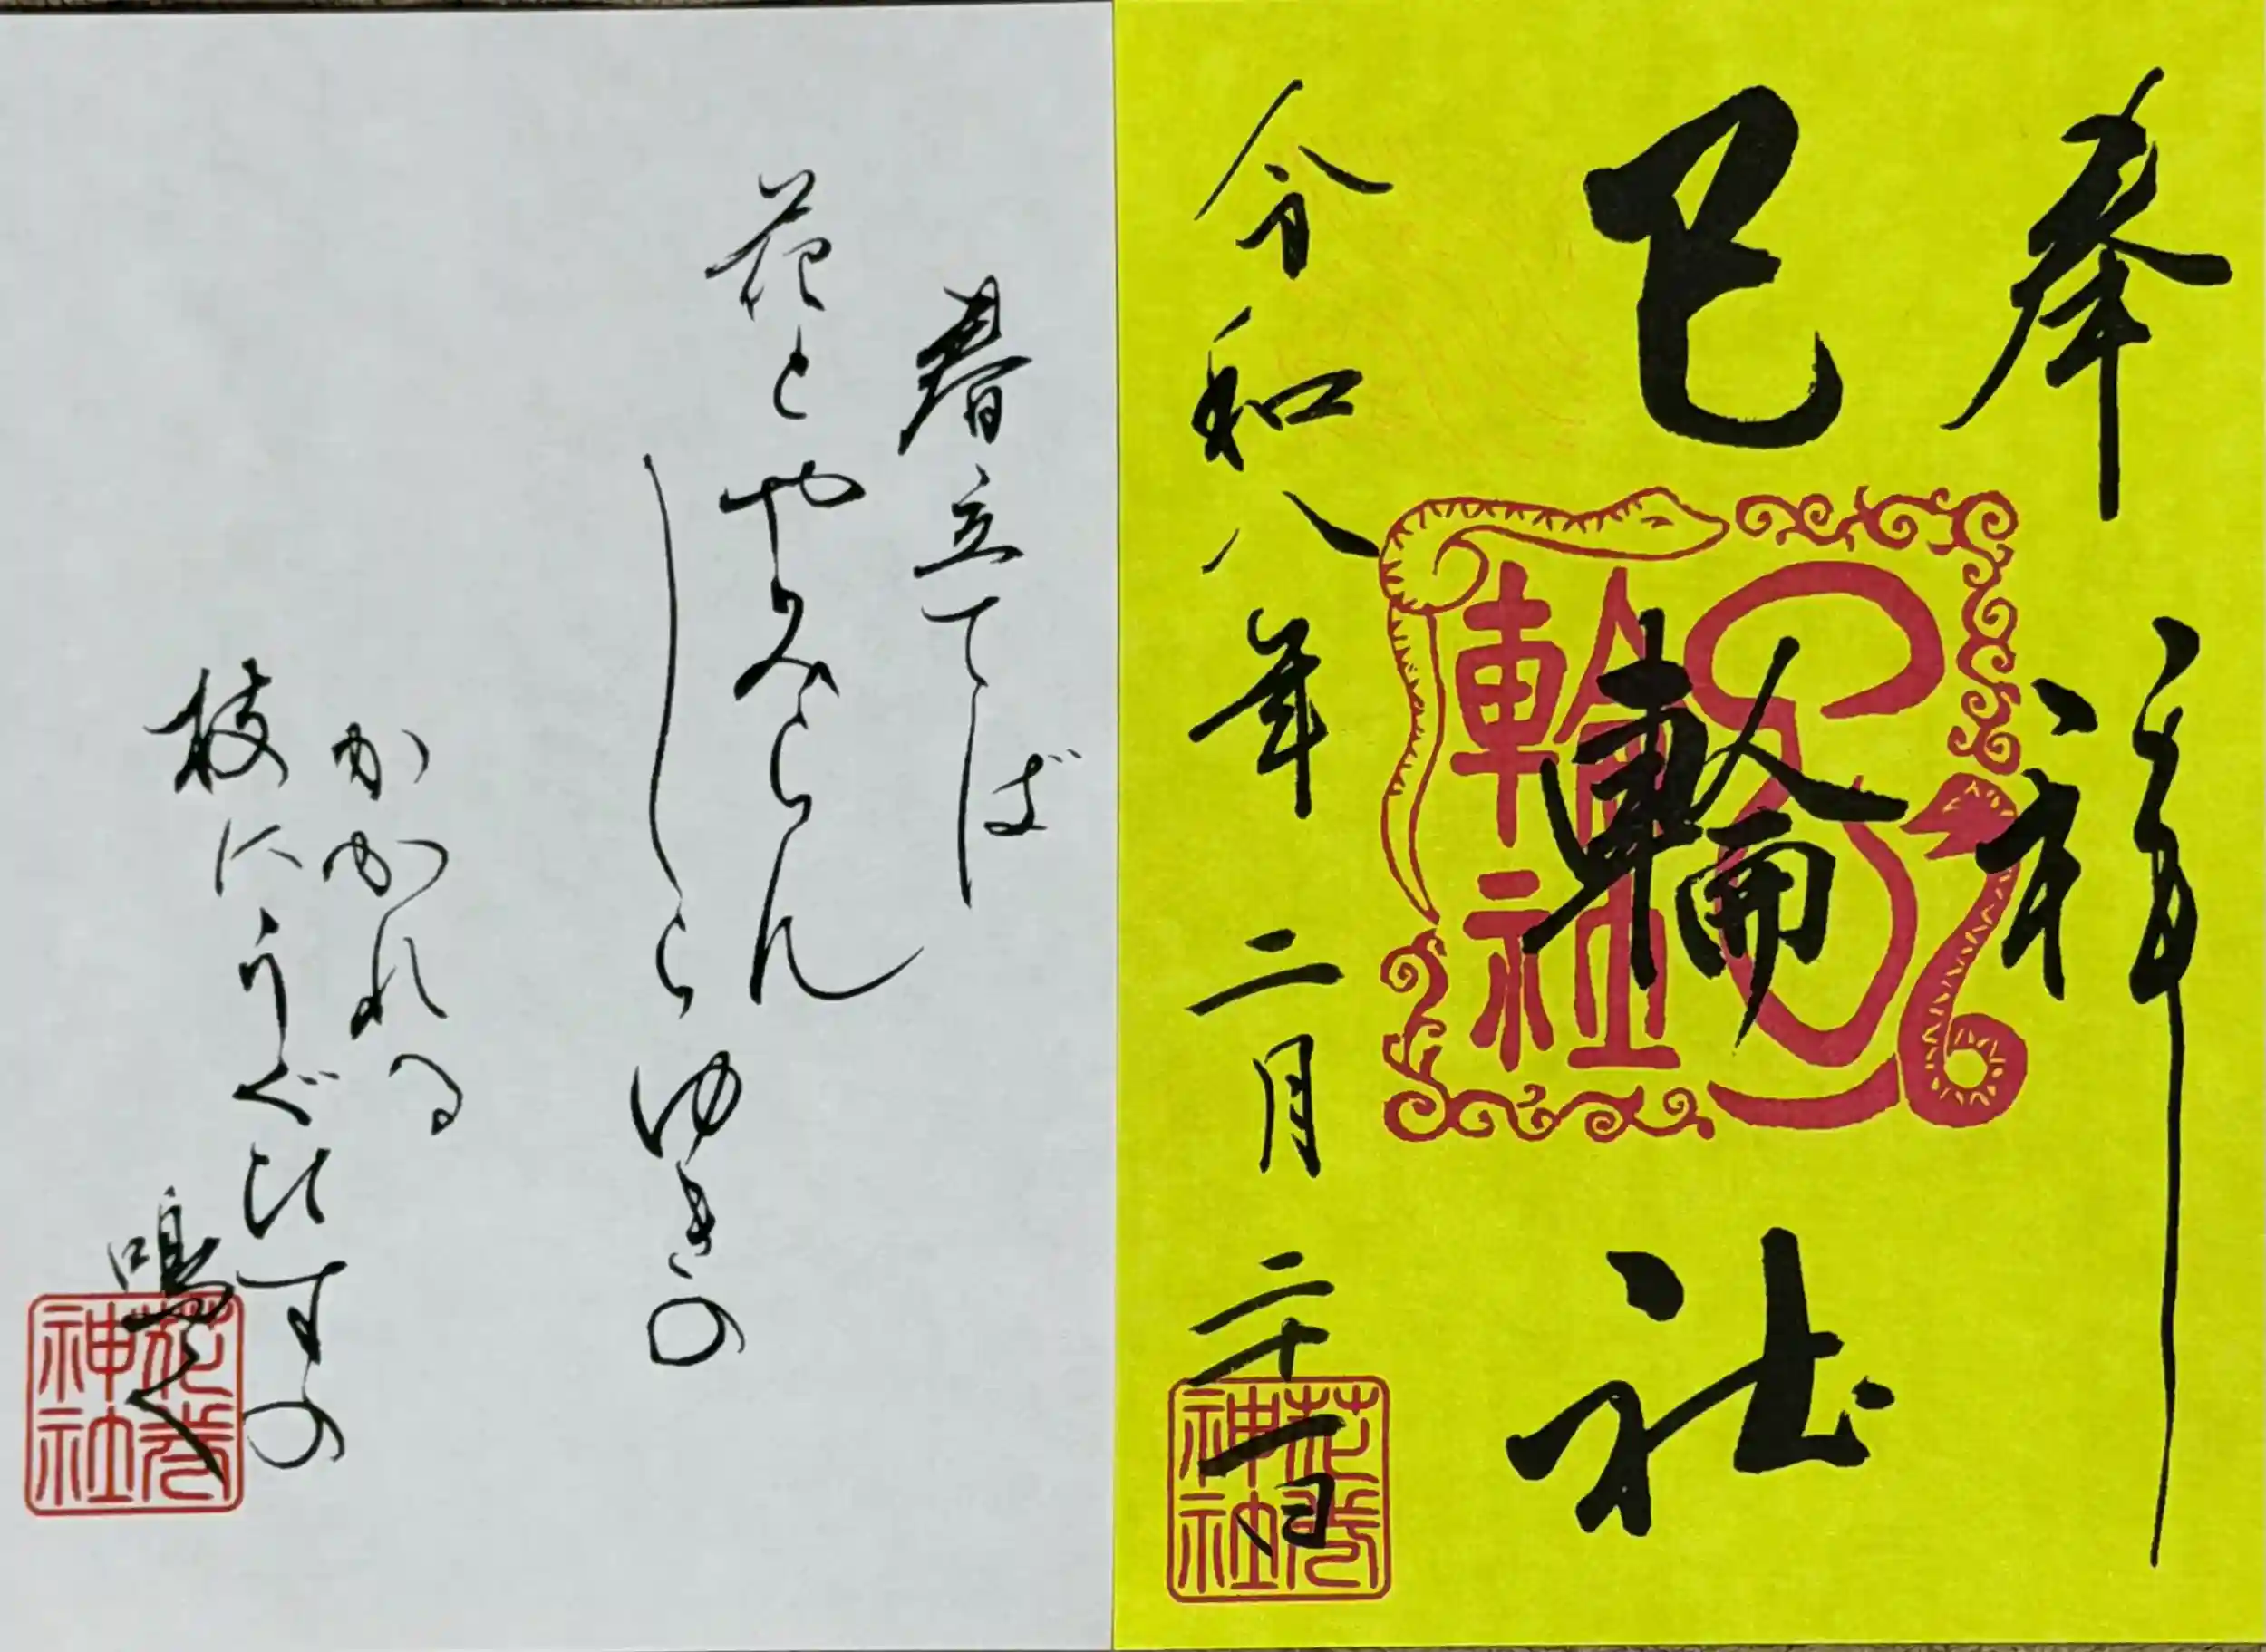 奉
巳輪社
巳輪社
令和八年二月二十一日
神社
春立てば
花とやみらん
しらゆきの
かかれる
枝にうぐひすの
鳴く
神社